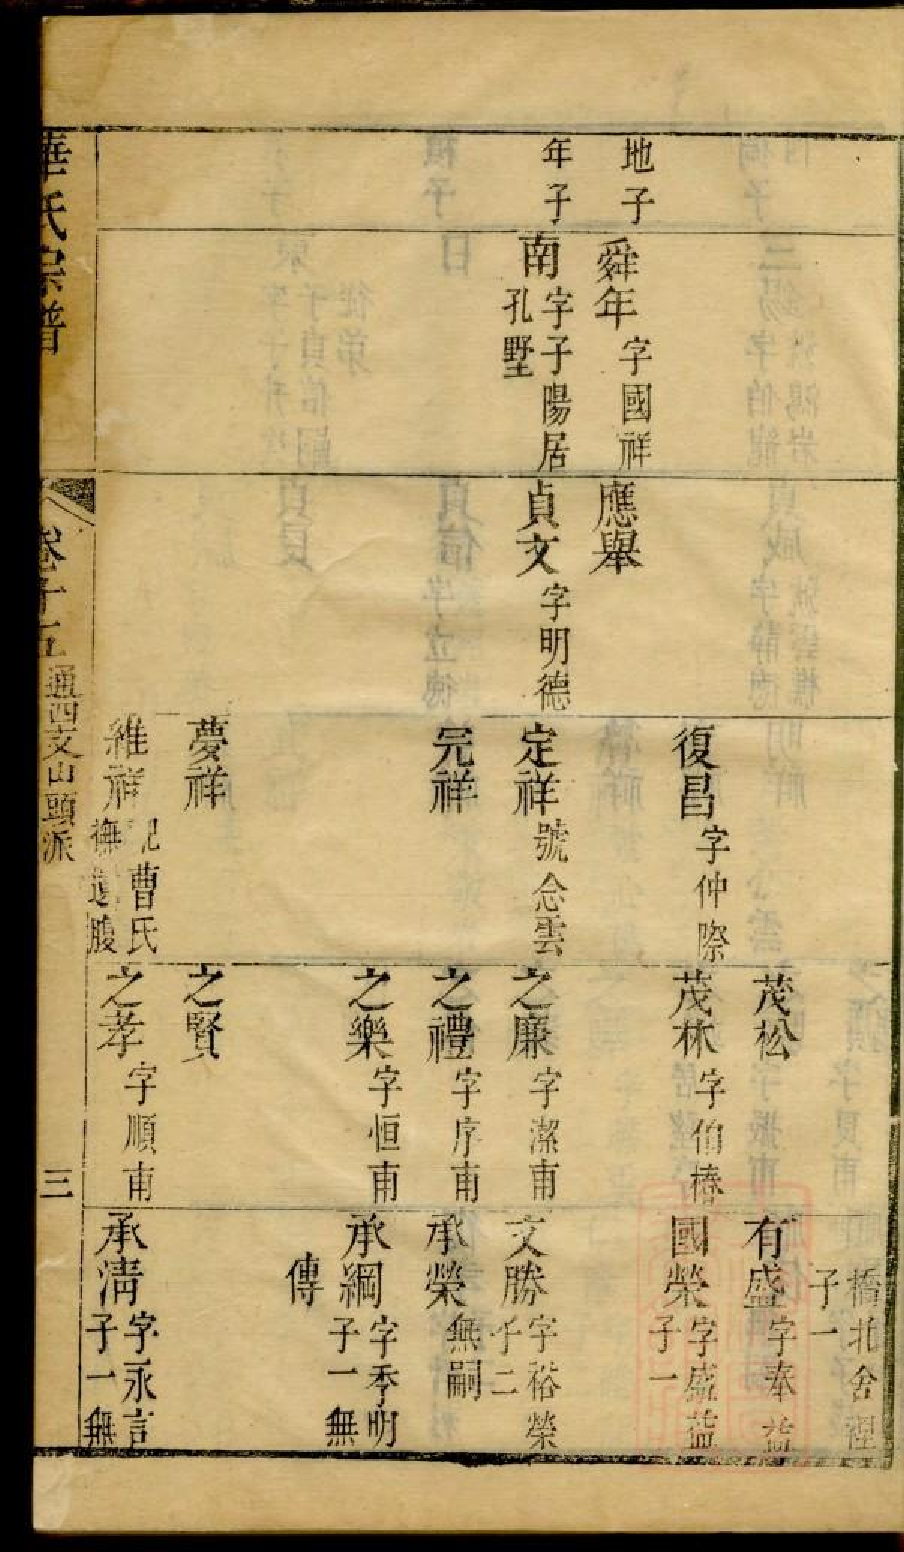 地子
年子
舜年 字國祥
南 字子陽居
孔墅
應舉
貞文 字明德
復昌 字仲際
定祥 號念雲
完祥
夢祥
維祥 配曹氏
撫遺腹
茂松
茂林 字伯椿
之廉 字潔甫
之禮 字序甫
之樂 字恒甫
之賢
之孝 字順甫
橋北舍涇
子一
有盛 字奉益
國榮 字盛益
子一
文勝 字裕榮
子二
承榮 無嗣
承綱 字季明
子一無
傳
承清 字永言
子一無
華氏宗譜
卷十五
通四支山頭派
三